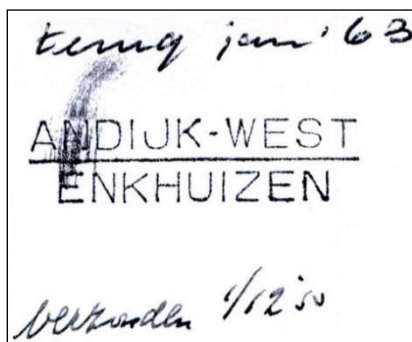 terug jan '63
ANDIJK-WEST
ENKHUIZEN
verzonden 1/12'50